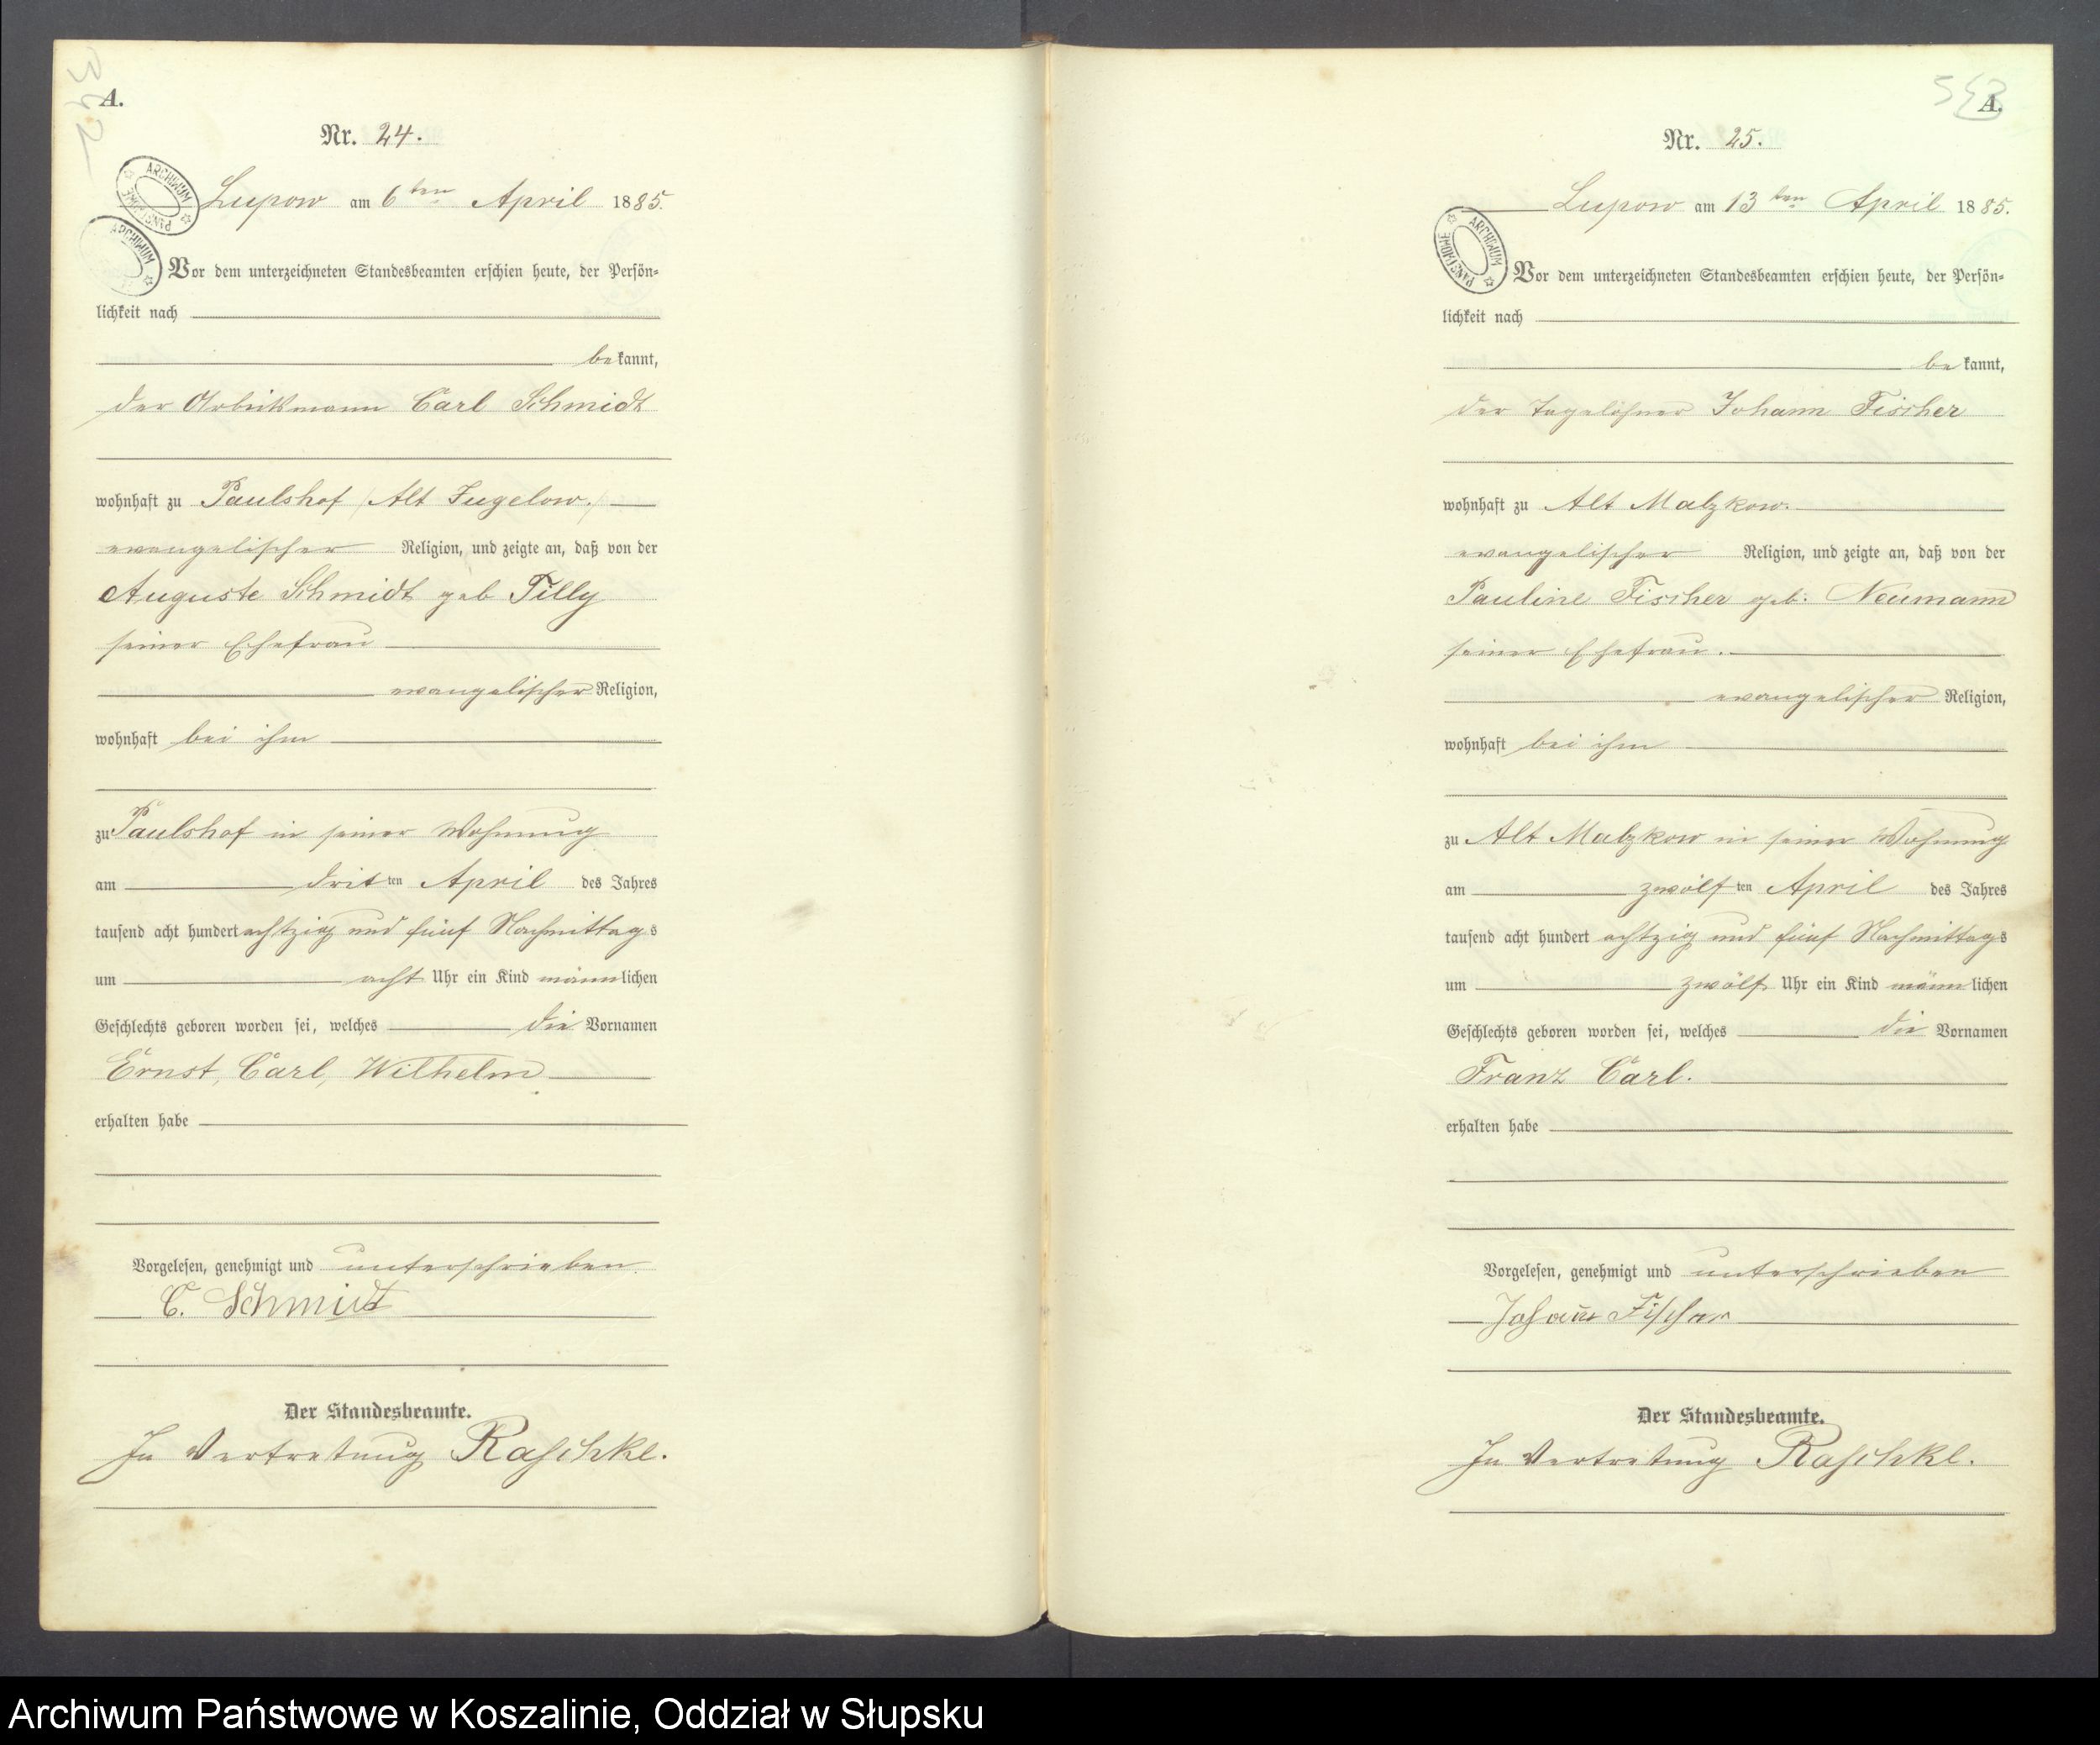 A.
Nr. 24.
Lupow am 6ten April 1885.
Vor dem unterzeichneten Standesbeamten erschien heute, der Persön-
lichkeit nach
bekannt,
der Arbeitsmann Carl Schmidt
wohnhaft zu Paulshof /Alt Jugelow./
evangelischer Religion, und zeigte an, daß von der
Auguste Schmidt geb Tilly
seiner Ehefrau
evangelischer Religion,
wohnhaft bei ihm
zu Paulshof in seiner Wohnung
am dritten April des Jahres
tausend acht hundert achtzig und fünf Nachmittags
um acht Uhr ein Kind männlichen
Geschlechts geboren worden sei, welches die Vornamen
Ernst, Carl, Wilhelm
erhalten habe
Vorgelesen, genehmigt und unterschrieben
C. Schmidt
Der Standesbeamte.
In Vertretung Raschke.
ARCHIWUM PAŃSTWOWE
ARCHIWUM
A.
Nr. 25.
Lupow am 13ten April 1885.
Vor dem unterzeichneten Standesbeamten erschien heute, der Persön-
lichkeit nach
bekannt,
der Tagelöhner Johann Fischer
wohnhaft zu Alt Malzkow.
evangelischer Religion, und zeigte an, daß von der
Pauline Fischer geb. Neumann
seiner Ehefrau.
evangelischer Religion,
wohnhaft bei ihm
zu Alt Malzkow in seiner Wohnung
am zwölften April des Jahres
tausend acht hundert achtzig und fünf Nachmittags
um zwölf Uhr ein Kind männlichen
Geschlechts geboren worden sei, welches die Vornamen
Franz Carl.
erhalten habe
Vorgelesen, genehmigt und unterschrieben
Johann Fischer
Der Standesbeamte.
In Vertretung Raschke.
ARCHIWUM PAŃSTWOWE
Archiwum Państwowe w Koszalinie, Oddział w Słupsku